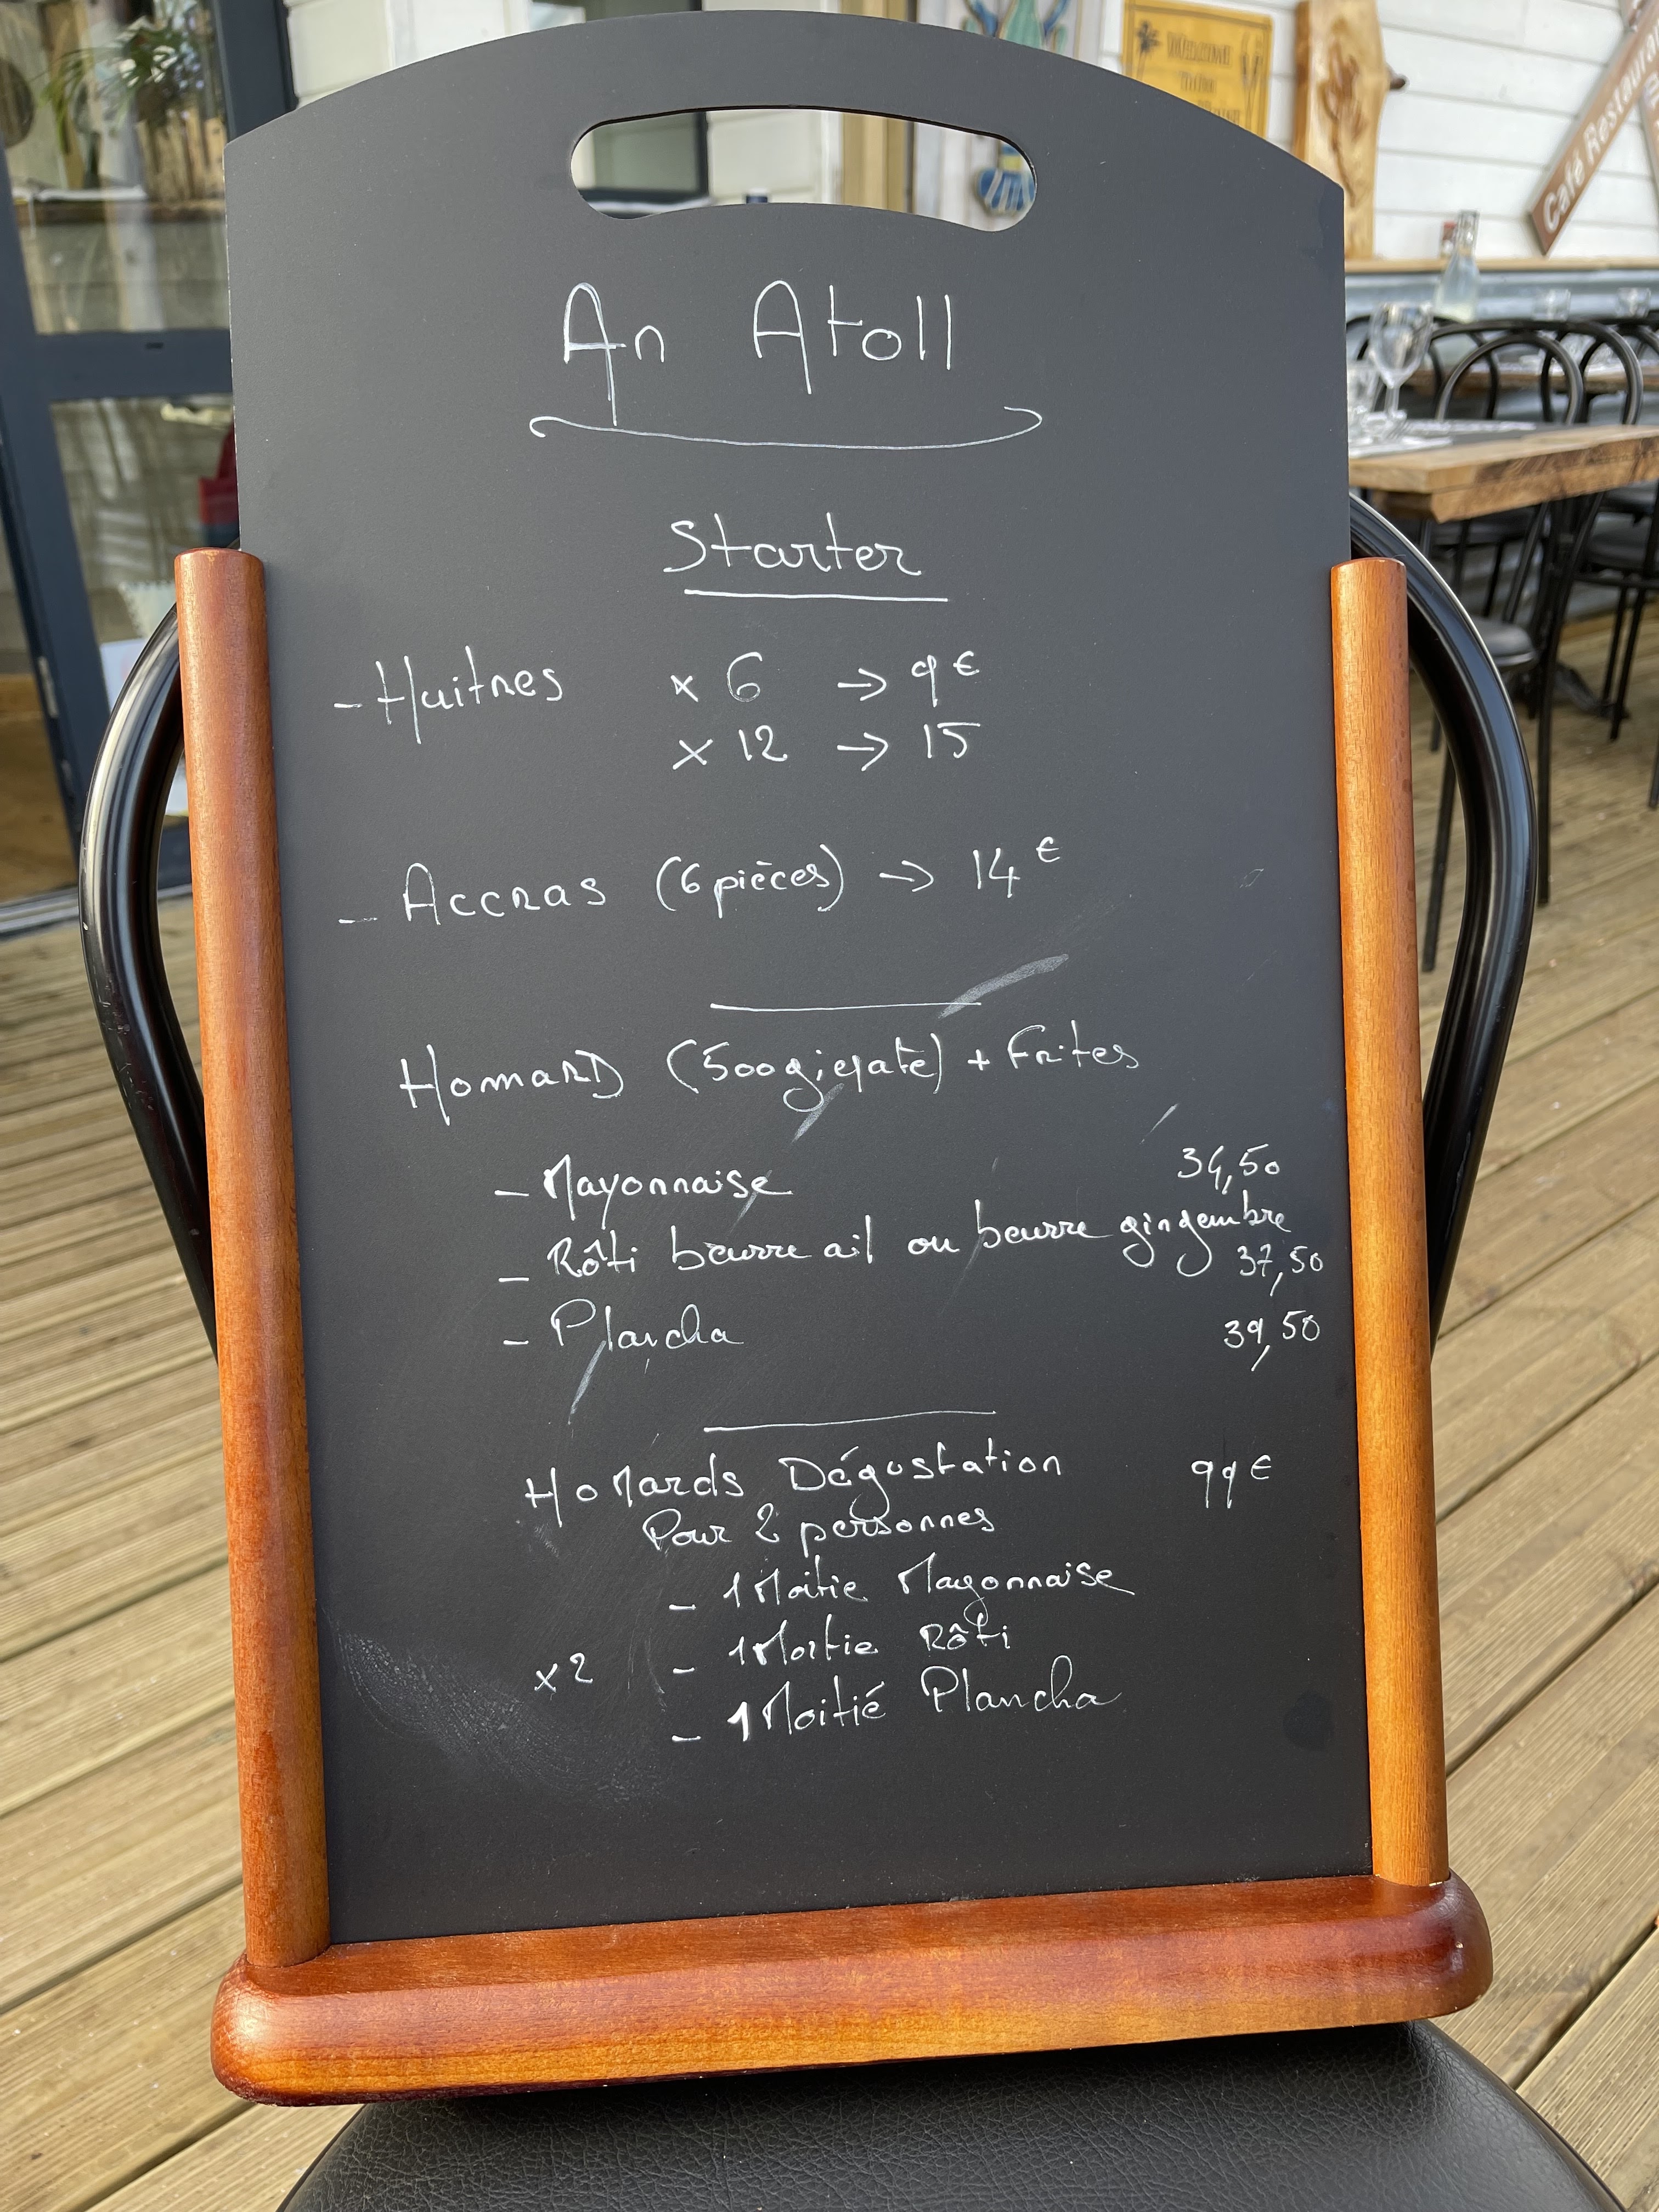 An Atoll
Starter
- Huitres x 6 → 9€
x 12 → 15
- Accras (6 pièces) → 14€
Homard (500g + Frites
- Mayonnaise 34,50
- Rôti beurre ail ou beurre gingembre
37,50
- Plancha 39,50
Homards Dégustation 99€
Pour 2 personnes
- 1 Moitie Mayonnaise
x2 - 1 Moitie Rôti
- 1 Moitié Plancha
WELCOME
Café Restaurant